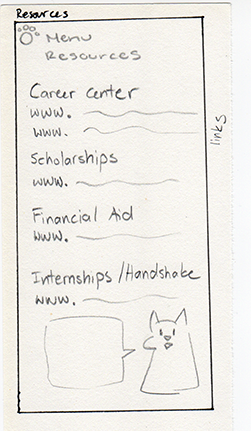 Resources
Menu
Resources
Career Center
www.
www.
links
Scholarships
www.
Financial Aid
www.
Internships/Handshake
www.